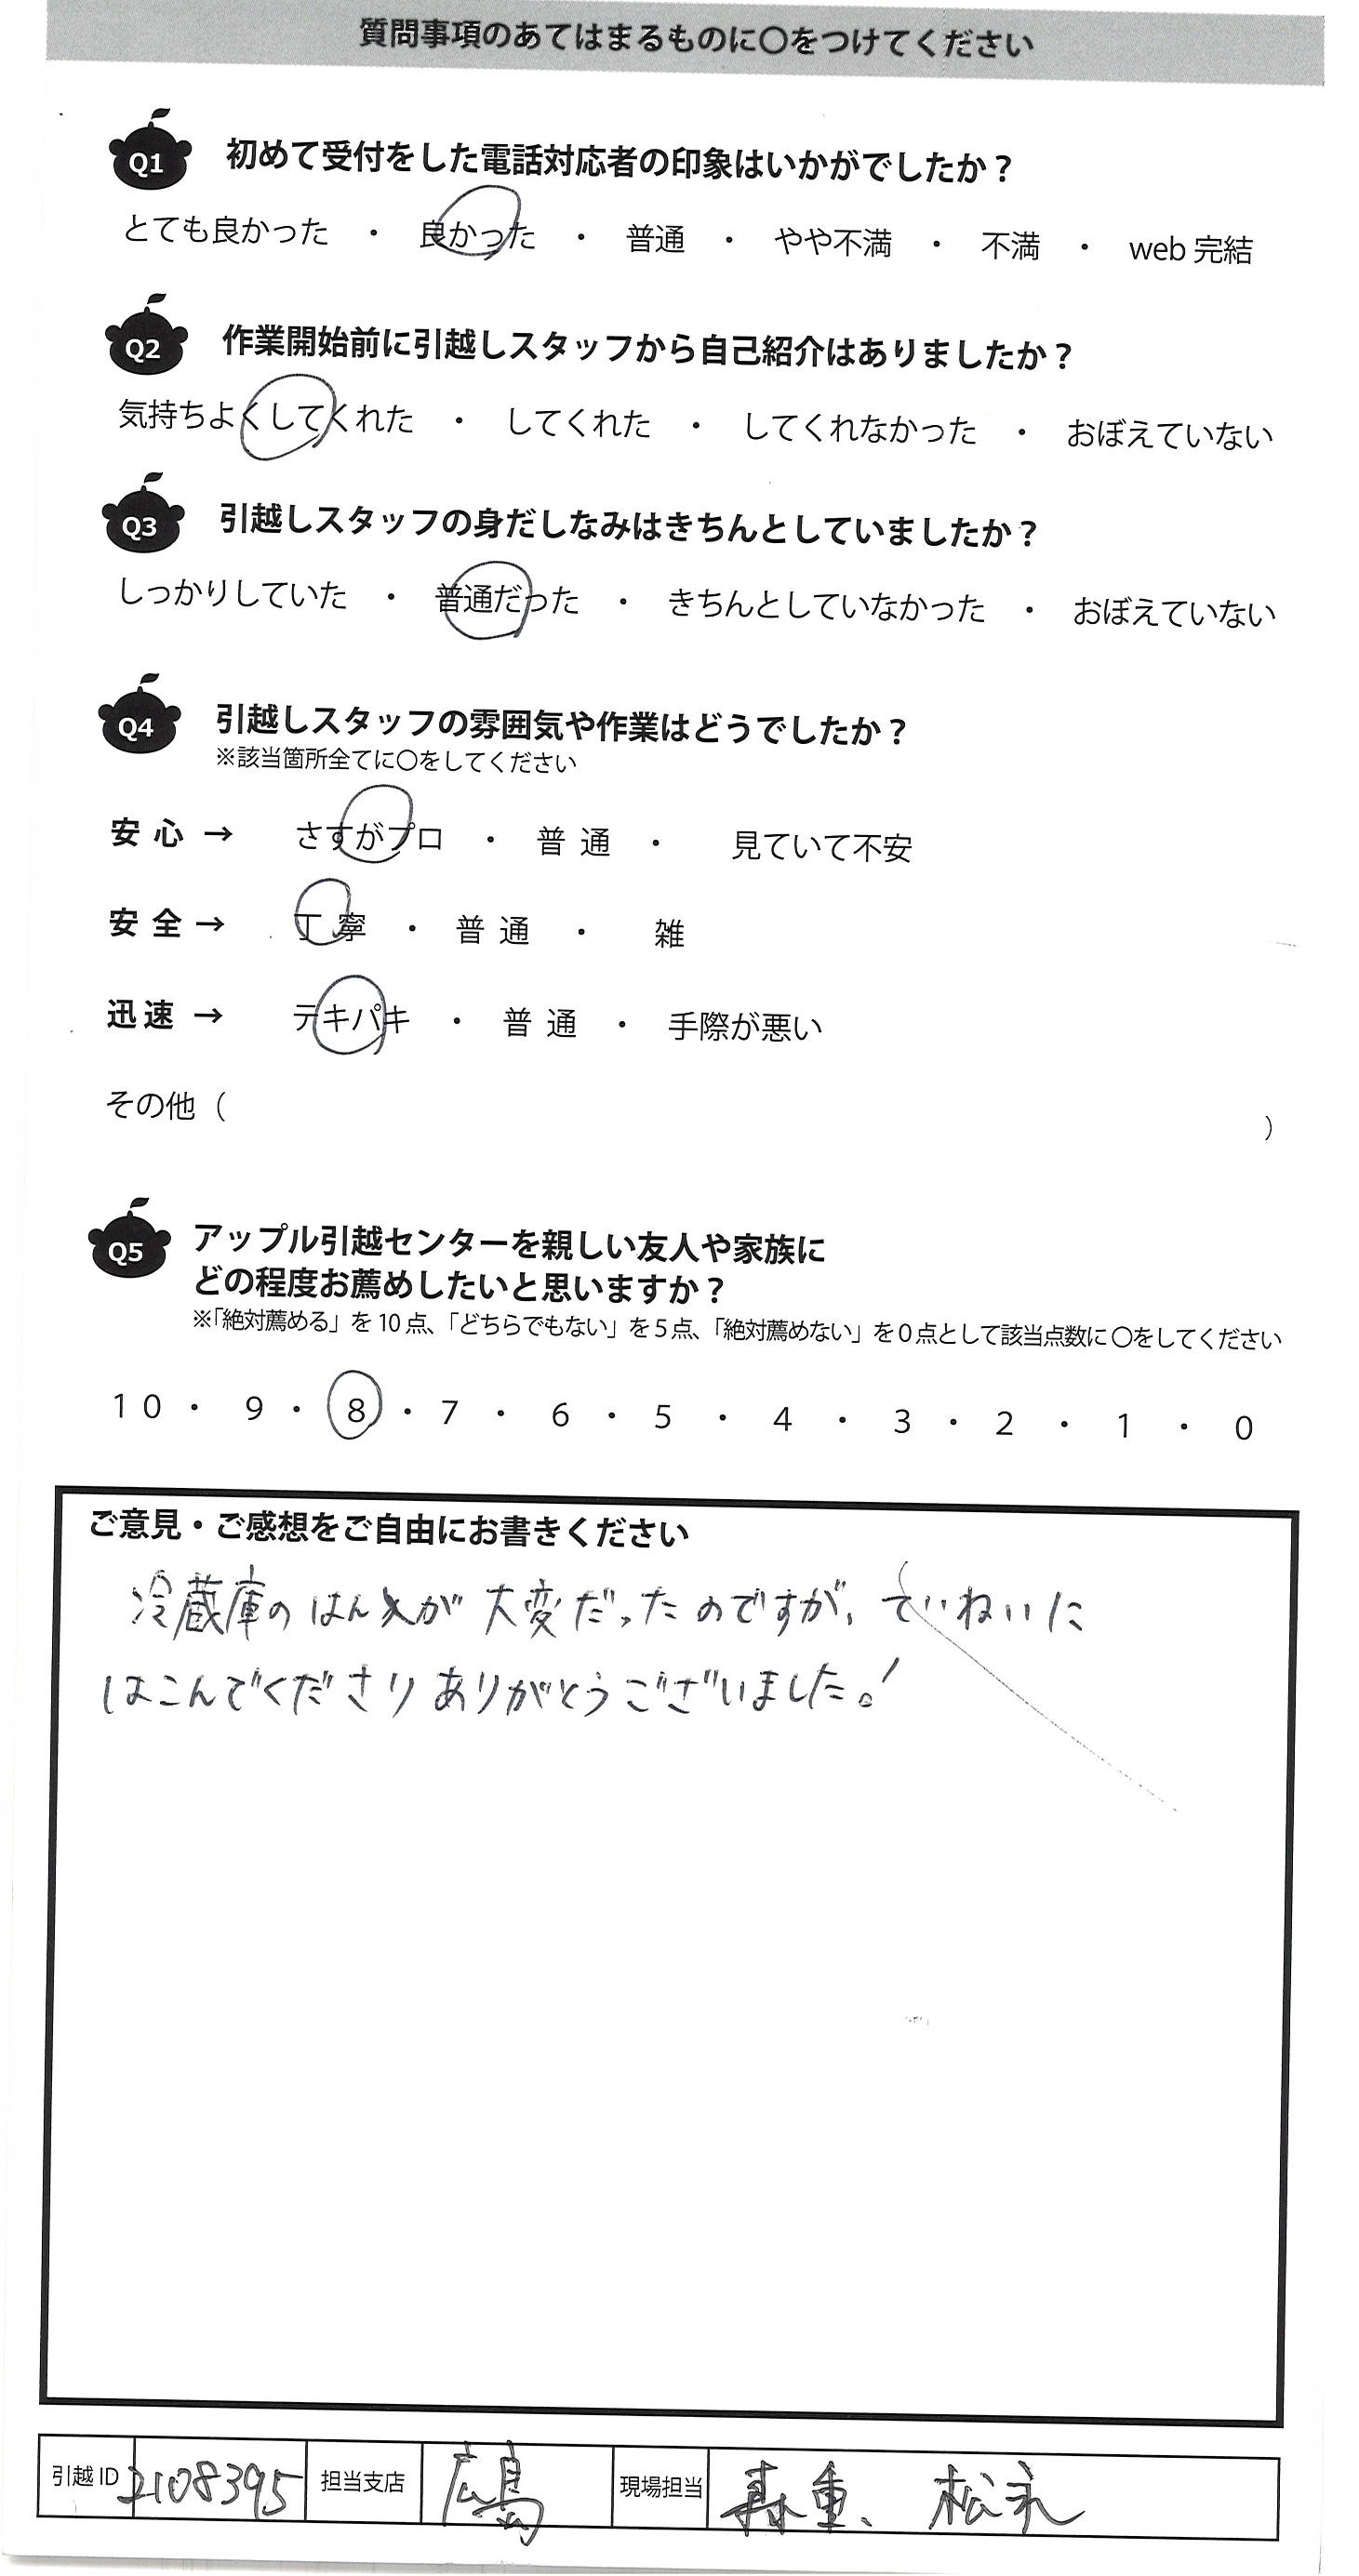 質問事項のあてはまるものに〇をつけてください
Q1 初めて受付をした電話対応者の印象はいかがでしたか？
とても良かった ・ 良かった ・ 普通 ・ やや不満 ・ 不満 ・ web 完結
Q2 作業開始前に引越しスタッフから自己紹介はありましたか？
気持ちよくしてくれた ・ してくれた ・ してくれなかった ・ おぼえていない
Q3 引越しスタッフの身だしなみはきちんとしていましたか？
しっかりしていた ・ 普通だった ・ きちんとしていなかった ・ おぼえていない
Q4 引越しスタッフの雰囲気や作業はどうでしたか？
※該当箇所全てに〇をしてください
安 心 → さすがプロ ・ 普 通 ・ 見ていて不安
安 全 → 丁 寧 ・ 普 通 ・ 雑
迅 速 → テキパキ ・ 普 通 ・ 手際が悪い
その他（ ）
Q5 アップル引越センターを親しい友人や家族に
どの程度お薦めしたいと思いますか？
※「絶対薦める」を 10 点、「どちらでもない」を 5 点、「絶対薦めない」を 0 点として該当点数に 〇をしてください
10 ・ 9 ・ 8 ・ 7 ・ 6 ・ 5 ・ 4 ・ 3 ・ 2 ・ 1 ・ 0
ご意見・ご感想をご自由にお書きください
冷蔵庫のはん入が 大変だったのですが、ていねいに
はこんでくださり ありがとうございました。!
引越 ID 2108395 担当支店 広島 現場担当 森重、 松永